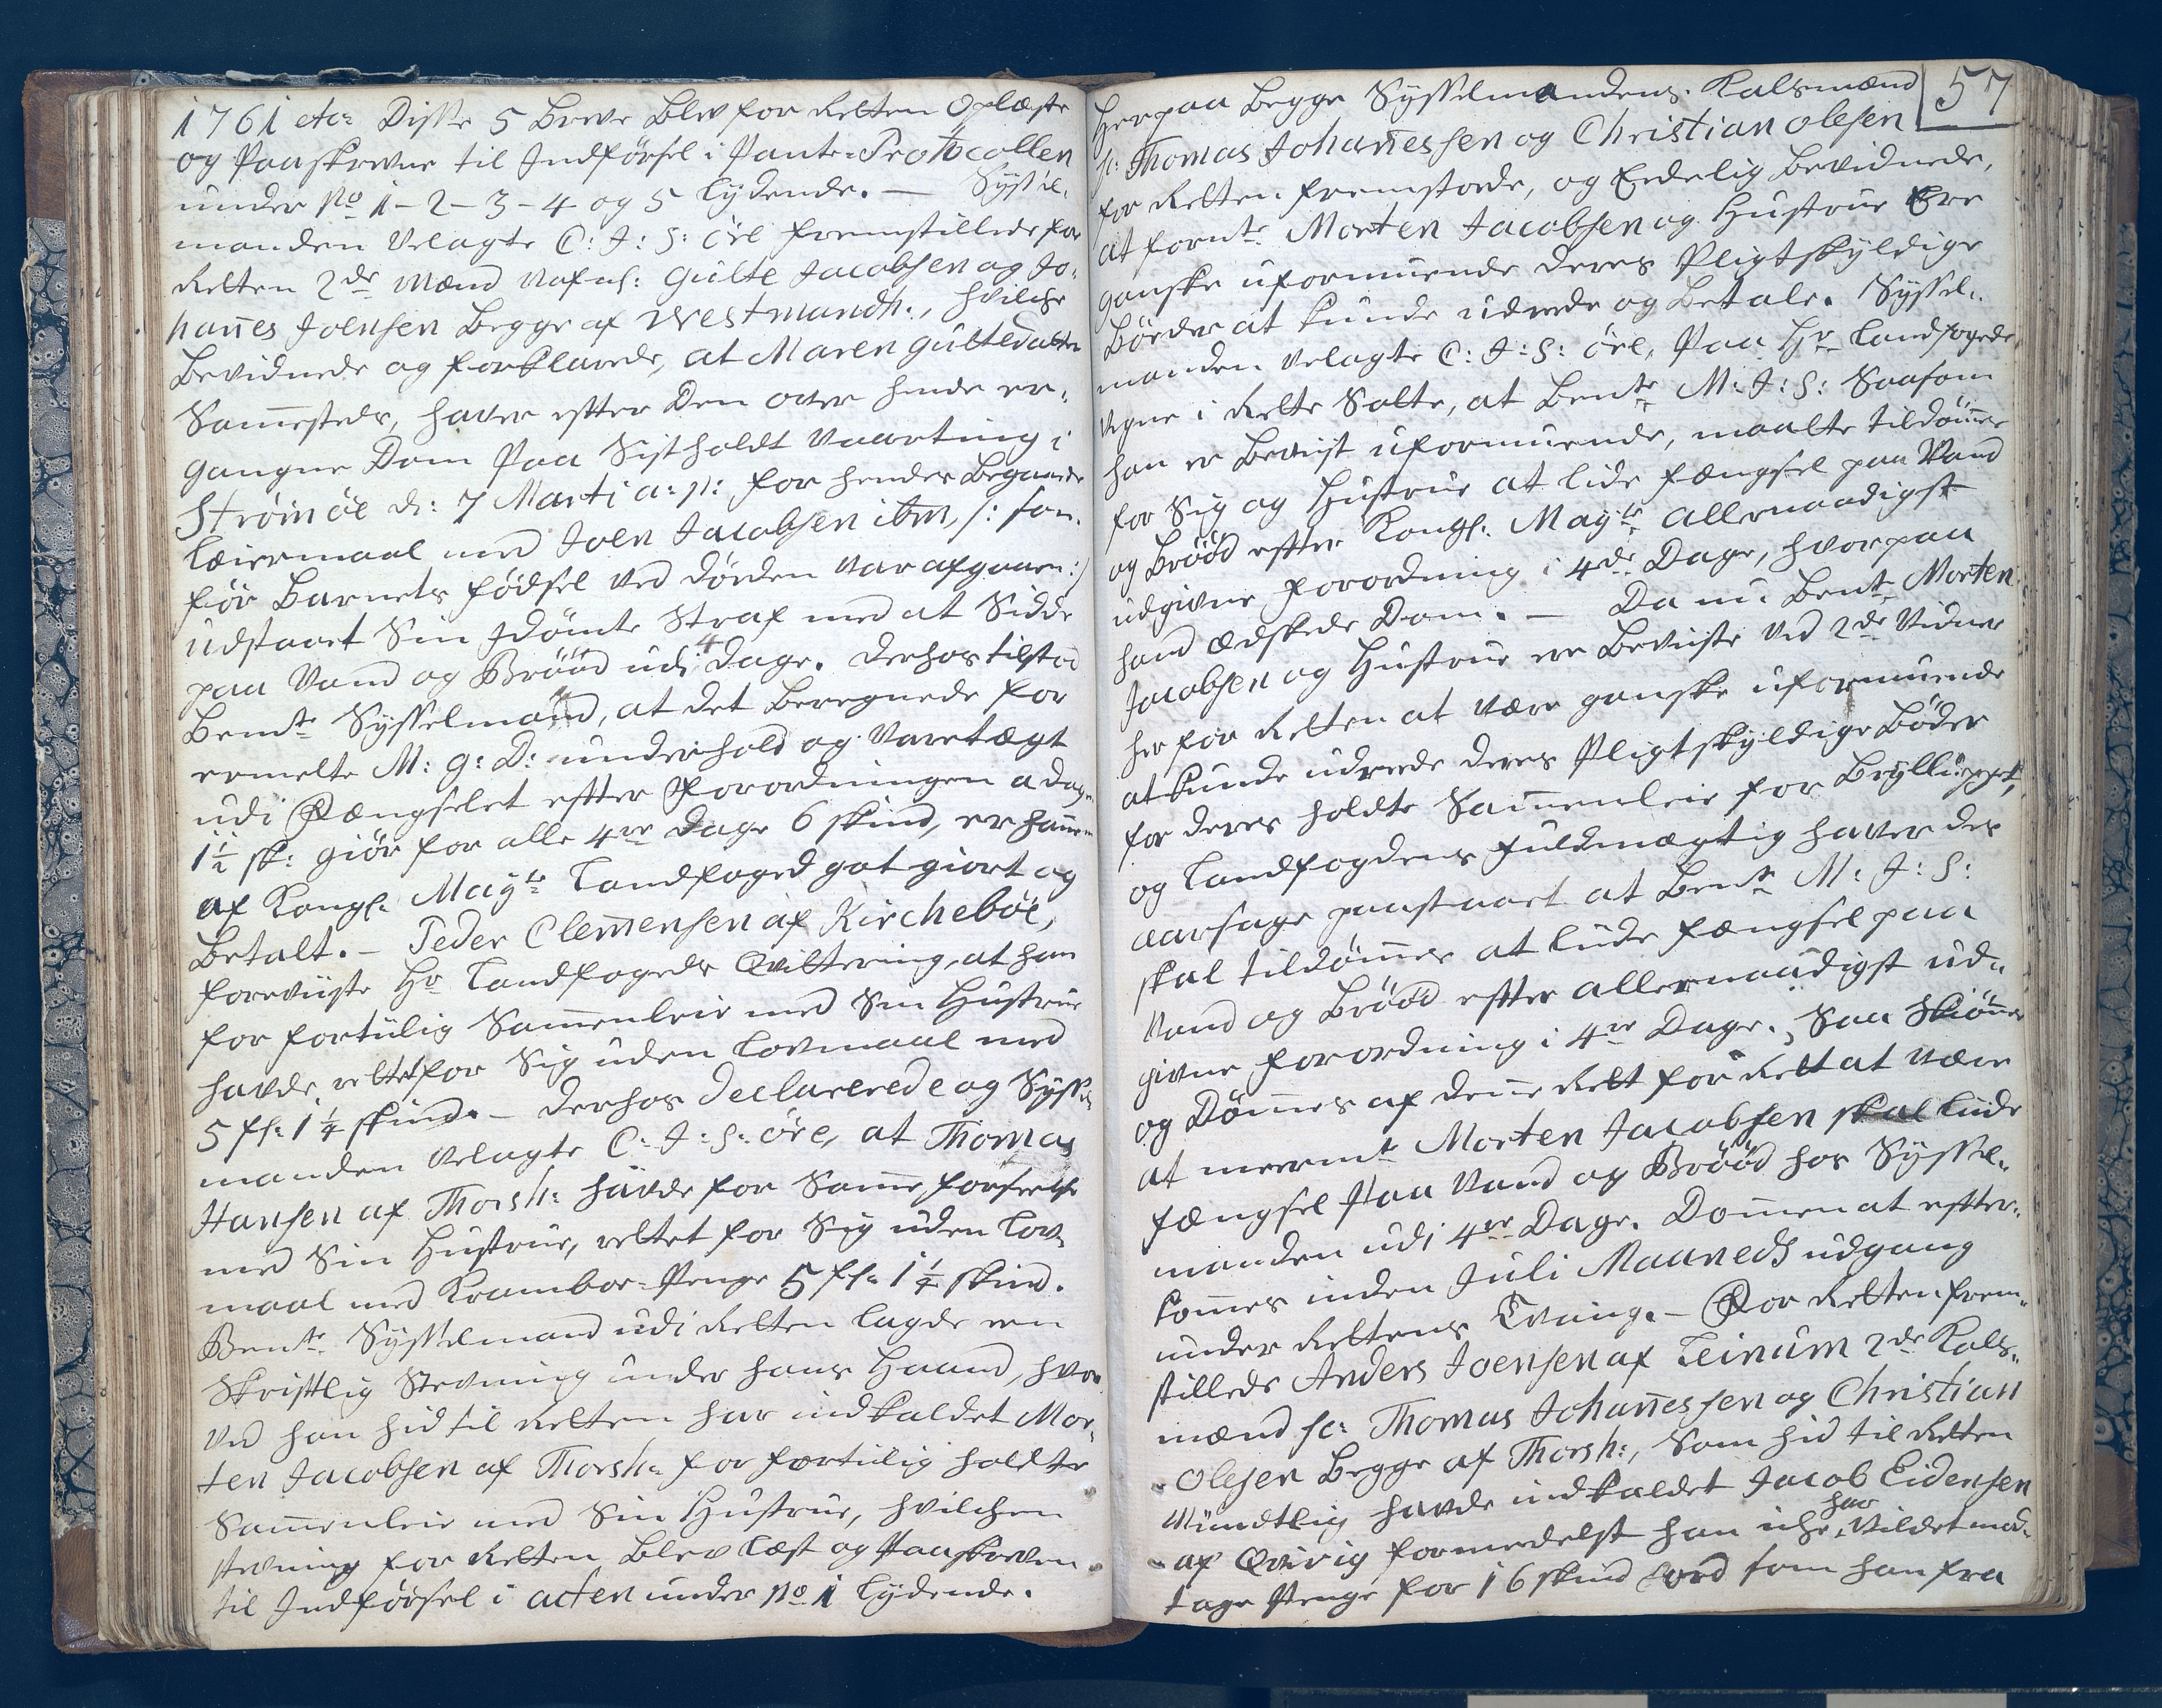 1761 etc: Disse 5 Breve Blev for Retten Oplæste
og Paaskrevne til Indførsel i Pante-Protocollen
under No 1-2-3-4 og 5 lydende. — Syssel-
manden Velagte C: J: S: öre fremstillede for
Retten 2de Mænd Nafnl: Gulte Jacobsen og Jo-
han̄es Joensen Begge af Westmanh:, hvilche
Bevidnede og forklarede, at Maren Gultedatter
Sam̄esteds, haver efter Den over hende er-
gangne Dom Paa Sistholdt Vaarting i
Strömöe d: 7 Marti a: p: for hendes Begaaede
Leiermaal med Joen Jacobsen ibm, /: som
för Barnets födsel ved döden var afgaaen :/
udstaaet Sin Idömte Straf med at Sidde
paa Vand og Brööd udi 4 Dage. Derhos tilstod
Bemte Sysselmand, at det Beregnede for
ermelte M: G: D: underhold og Varetægt
udi Fængselet efter Forordningen a dag
1½ sk: giör for alle 4re Dage 6 skind, er ham̄em
af Kongl: Mayts Landfoged got giort og
Betalt. — Peder Clem̄ensen af Kircheböe,
foreviiste Hr Landfogeds Qvittering, at han
for fortiilig Sam̄enleie med Sin Hustrue
havde rettet for Sig uden Lovmaal med
5 fl: 1¼ skind. — Derhos declarerede og Syssel-
manden Velagte C: J: S: öre, at Thomas
Hansen af Thorsh: havde for Sam̄e forseelse
med Sin Hustrue, rettet for Sig uden Lov-
maal med Krambor-Penge 5 fl: 1¼ skind.
Bemte Sysselmand udi Retten lagde een
Skriftlig Stevning under hans Haand, hvor
ved han hid til Retten har indkaldet Mor-
ten Jacobsen af Thorsh: for fortiilig holdte
Sam̄enleie med Sin Hustrue, hvilchen
Stevning for Retten Blev læst og Paaskreven
til Indförsel i acten under No 1 lydende.
57
Herpaa Begge Sysselmandens Kalsmænd
sc: Thomas Johan̄essen og Christian Olesen
for Retten fremstode, og Eedelig Bevidnede,
at fornte Morten Jacobsen og Hustrue Ere
ganske uformuende deres Pligtskyldige
Böeder at kunde udrede og Betale. Syssel-
manden Velagte C: J: S: öre, Paa Hr Landfogeds
vegne i Rette Satte, at Bemte M: J: S: Saasom
han er Beviist uformuende, maatte tildöm̄es
for Sig og Hustrue at lide fængsel paa Vand
og Brööd efter Kongl: Mayts allernaadigst
udgivne Forordning i 4de Dage, hvorpaa
hand ædskede Dom. — Da nu Bemte Morten
Jacobsen og Hustrue ere Beviiste ved 2de Vidner
her for Retten at være ganske uformuende
at kunde udrede deres Pligtskyldige Böder
for deres holdte Sam̄enleie for Bryllupet,
og Landfogdens Fuldmægtig haver des
aarsage paastaaet at Bemte M: J: S:
skal tildöm̄es at liide fængsel paa
Vand og Brööd efter allernaadigst ud-
givne Forordning i 4re Dage. Saa Skiön̄es
og Döm̄es af den̄e Rett for Rett at være
at meermte Morten Jacobsen skal liide
fængsel Paa Vand og Brööd hos Syssel-
manden udi 4re Dage. Dom̄en at efter-
kom̄es inden Juli Maaneds udgang
under Rettens Tvang. — For Retten frem-
stillede Anders Joensen af Leinum 2de Kals-
mænd sc: Thomas Johan̄essen og Christian
Olesen Begge af Thorsh:, Som hid til Retten
Mundtlig havde indkaldet Jacob Eidensen
af Qvivig formedelst han iche har vildet mod-
tage Penge for 16 skind Jord som han fra